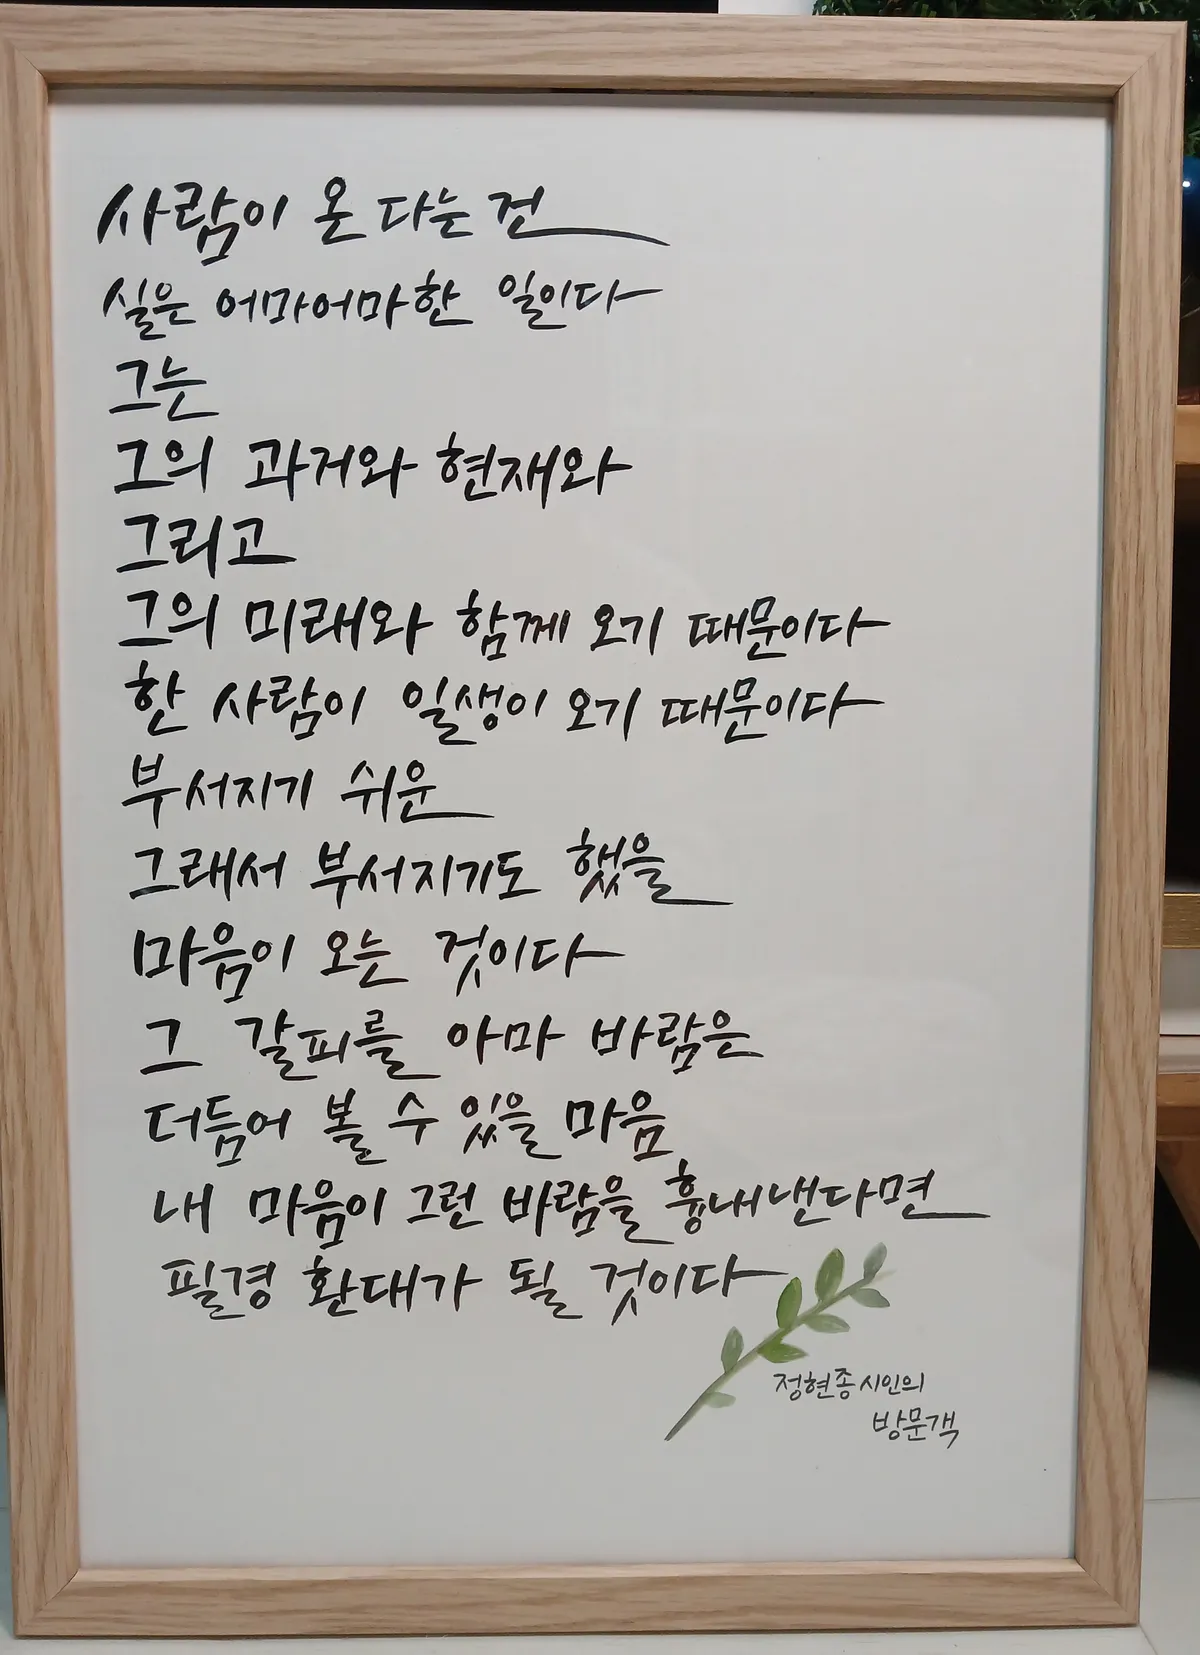 사람이 온다는 건
실은 어마어마한 일이다
그는
그의 과거와 현재와
그리고
그의 미래와 함께 오기 때문이다
한 사람의 일생이 오기 때문이다
부서지기 쉬운
그래서 부서지기도 했을
마음이 오는 것이다
그 갈피를 아마 바람은
더듬어 볼 수 있을 마음
내 마음이 그런 바람을 흉내낸다면
필경 환대가 될 것이다
정현종 시인의
방문객